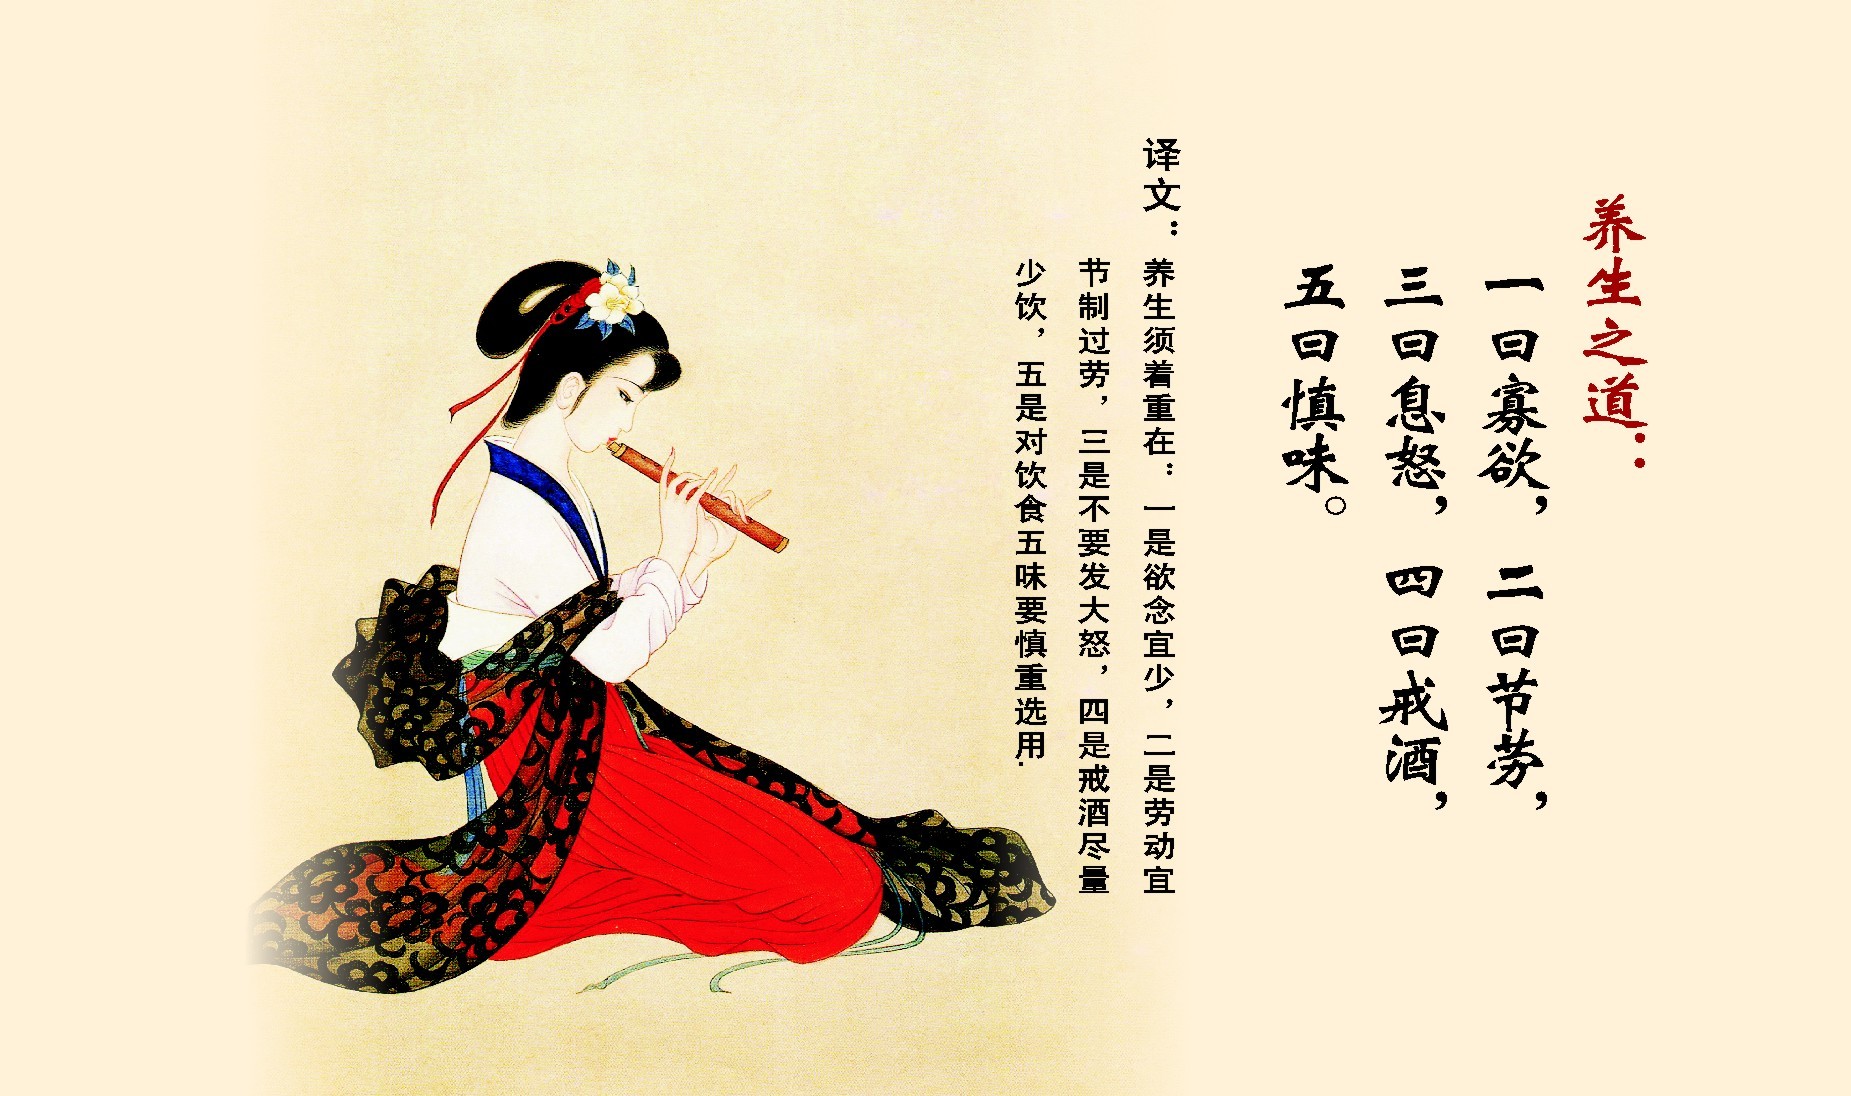 养生之道：
一曰寡欲，二曰节劳，
三曰息怒，四曰戒酒，
五曰慎味。
译文：养生须着重在：一是欲念宜少，二是劳动宜
节制过劳，三是不要发大怒，四是戒酒尽量
少饮，五是对饮食五味要慎重选用.